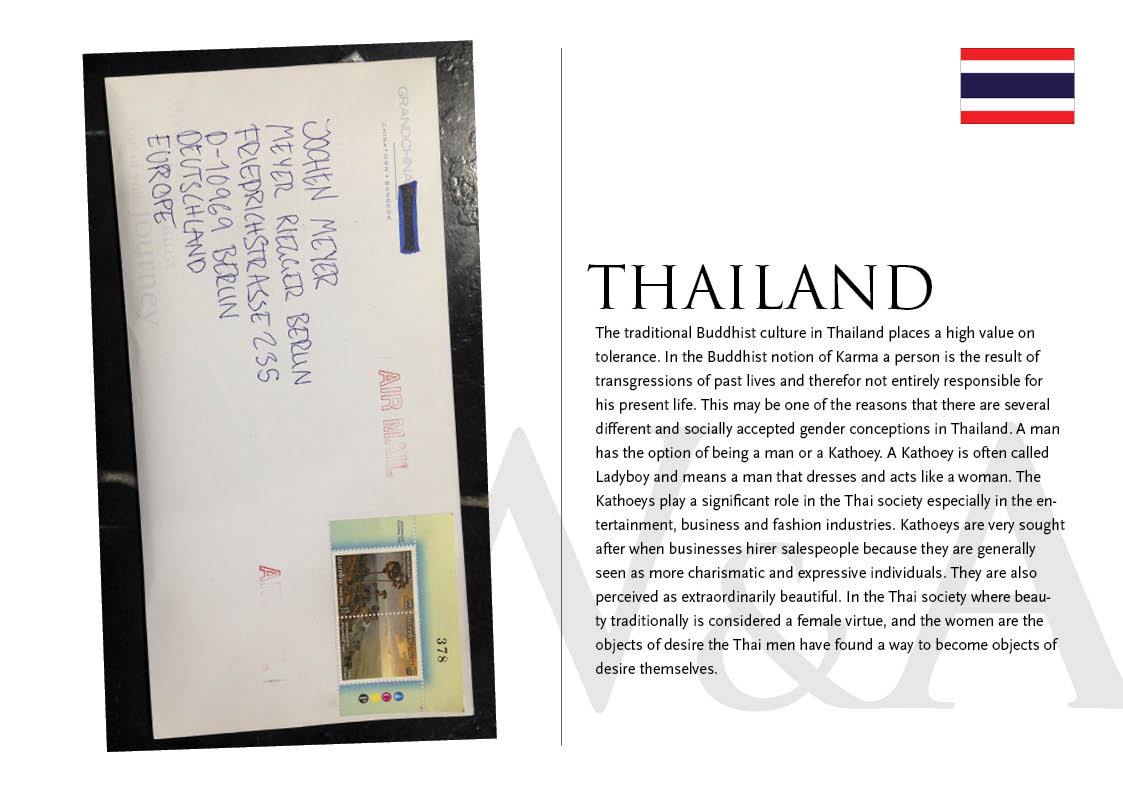 GRANDCHINA
CHINATOWN • BANGKOK
JOCHEN MEYER
MEYER RIEGGER BERLIN
FRIEDRICHSTRASSE 235
D-10969 BERLIN
DEUTSCHLAND
EUROPE
Journey
AIR MAIL
378
THAILAND
The traditional Buddhist culture in Thailand places a high value on
tolerance. In the Buddhist notion of Karma a person is the result of
transgressions of past lives and therefor not entirely responsible for
his present life. This may be one of the reasons that there are several
different and socially accepted gender conceptions in Thailand. A man
has the option of being a man or a Kathoey. A Kathoey is often called
Ladyboy and means a man that dresses and acts like a woman. The
Kathoeys play a significant role in the Thai society especially in the en-
tertainment, business and fashion industries. Kathoeys are very sought
after when businesses hirer salespeople because they are generally
seen as more charismatic and expressive individuals. They are also
perceived as extraordinarily beautiful. In the Thai society where beau-
ty traditionally is considered a female virtue, and the women are the
objects of desire the Thai men have found a way to become objects of
desire themselves.
W&A